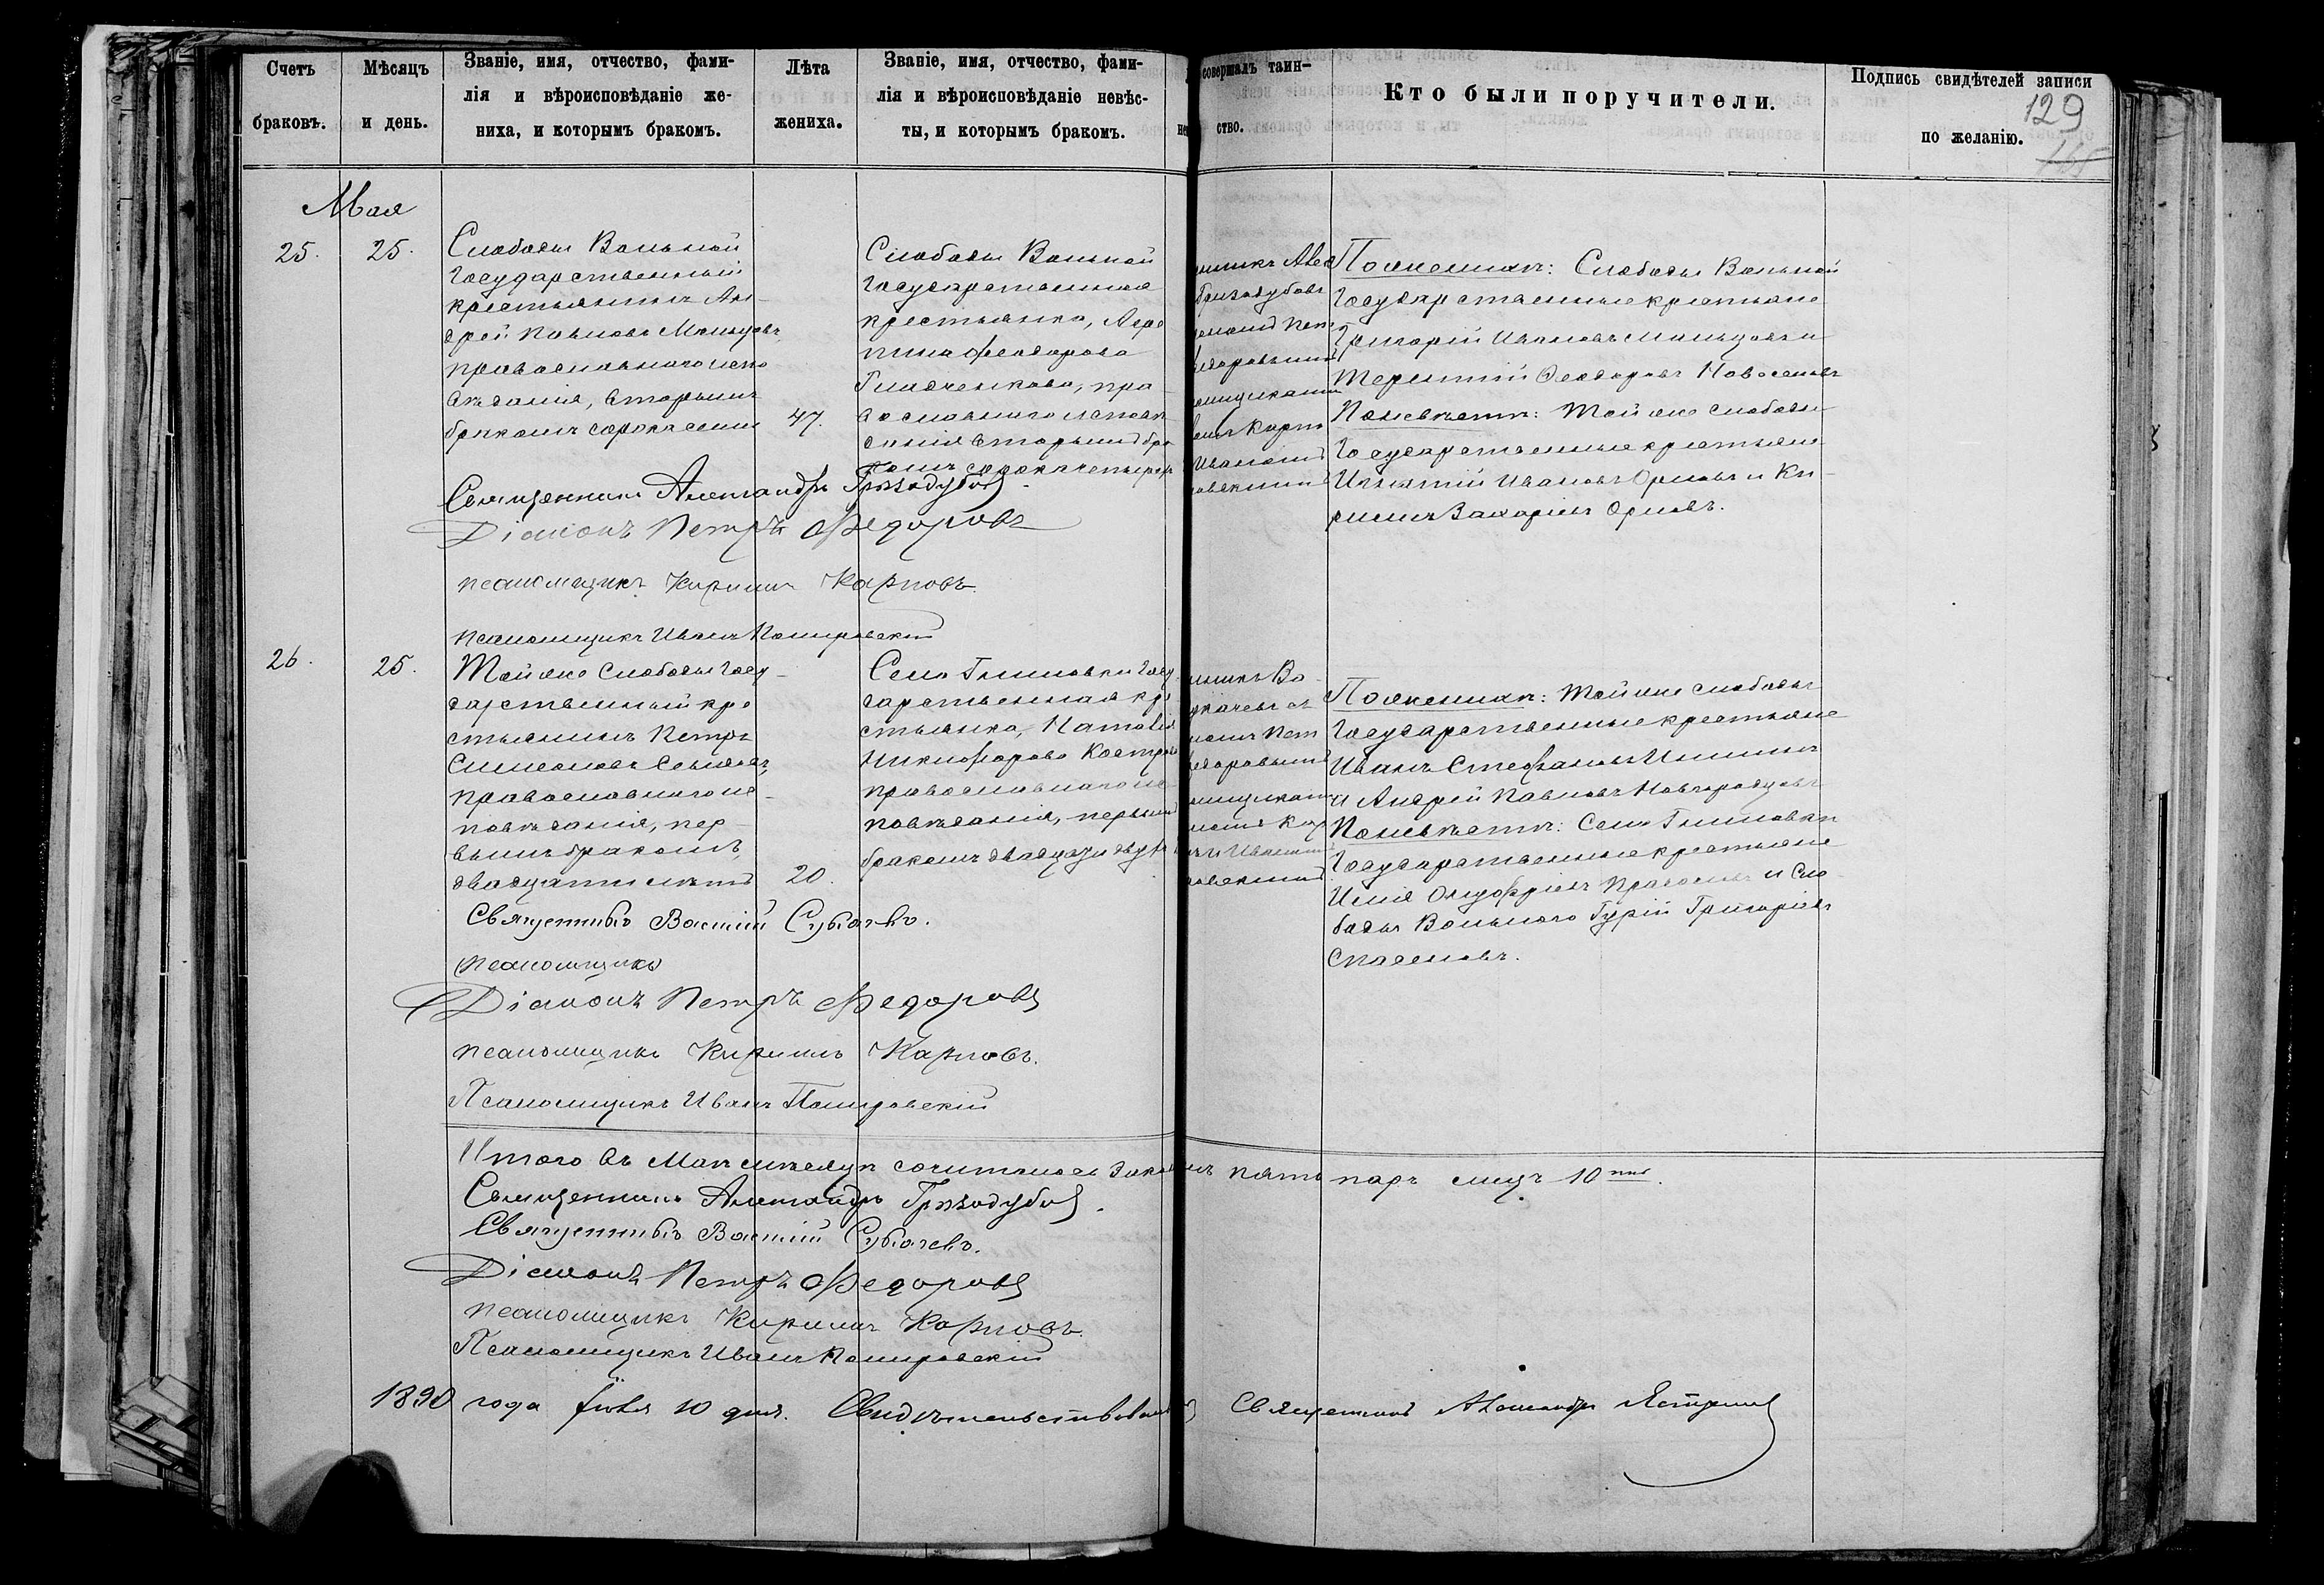 Счетъ
браковъ.
Мѣсяцъ
и день.
Званіе, имя, отчество, фами-
лія и вѣроисповѣданіе же-
ниха, и которымъ бракомъ.
Лѣта
жениха.
Званіе, имя, отчество, фами-
лія и вѣроисповѣданіе невѣс-
ты, и которымъ бракомъ.
совершалъ таин-
ство.
Кто были поручители.
Подпись свидѣтелей записи
по желанію.
129
Мая
25.
25.
Слободы Вольной
Государственный
крестьянинъ Ан-
дрей Павловъ Мальцовъ,
православнаго испо
вѣданія, вторымъ
бракомъ сорока семи
47.
Слободы Вольной
Государственная
крестьянка, Агре
пина Феодорова
Гладченкова, пра
вославнаго исповѣ
данія вторымъ бра
комъ сорока четырехъ
По женихѣ: Слободы Вольной
Государственные крестьяне
Григорій Ивановъ Мальцовъ и
Терентій Феодоровъ Новоселовъ
По невѣстѣ: Той же слободы
Государственные крестьяне
Игнатій Ивановъ Орловъ и Ки-
рилъ Захаріевъ Орловъ.
Священникъ Александръ Гризодубовъ
Діаконъ Петръ Федоровъ
псаломщикъ Кирилъ Карповъ.
псаломщикъ Иванъ Покировскій
26.
25.
Той же Слободы Госу-
дарственный кре
стьянинъ Петръ
Симеоновъ
православнаго ис-
повѣданія, пер-
вымъ бракомъ,
двадцати лѣтъ
20.
Села Глиновки Госу
дарственная кре
стьянка, Наталія
Никифорова
православнаго ис
повѣданія, первымъ
бракомъ двадцати двухъ
По женихѣ: Той же слободы
Государственные крестьяне
Иванъ Стефановъ
и Андрей Павловъ Новгородцовъ
По невѣстѣ: Села Глиновки
Государственные крестьяне
Илія Онуфріевъ и Сло-
боды Вольнаго Гурій Григоріевъ
Священникъ Василій Субачевъ.
псаломщикъ
Діаконъ Петръ Федоровъ
псаломщикъ Кирилъ Карповъ.
Псаломщикъ Иванъ Покировскій
Итого въ Маѣ мѣсяцѣ сочиталось бракомъ пять паръ лицъ 10
Священникъ Александръ Гризодубовъ.
Священникъ Василій Субачевъ.
Діаконъ Петръ Федоровъ
псаломщикъ Кирилъ Карповъ.
Псаломщикъ Иванъ Покировскій
1890 года Іюля 10 дня. Свидѣтельствовалъ Священникъ Александръ